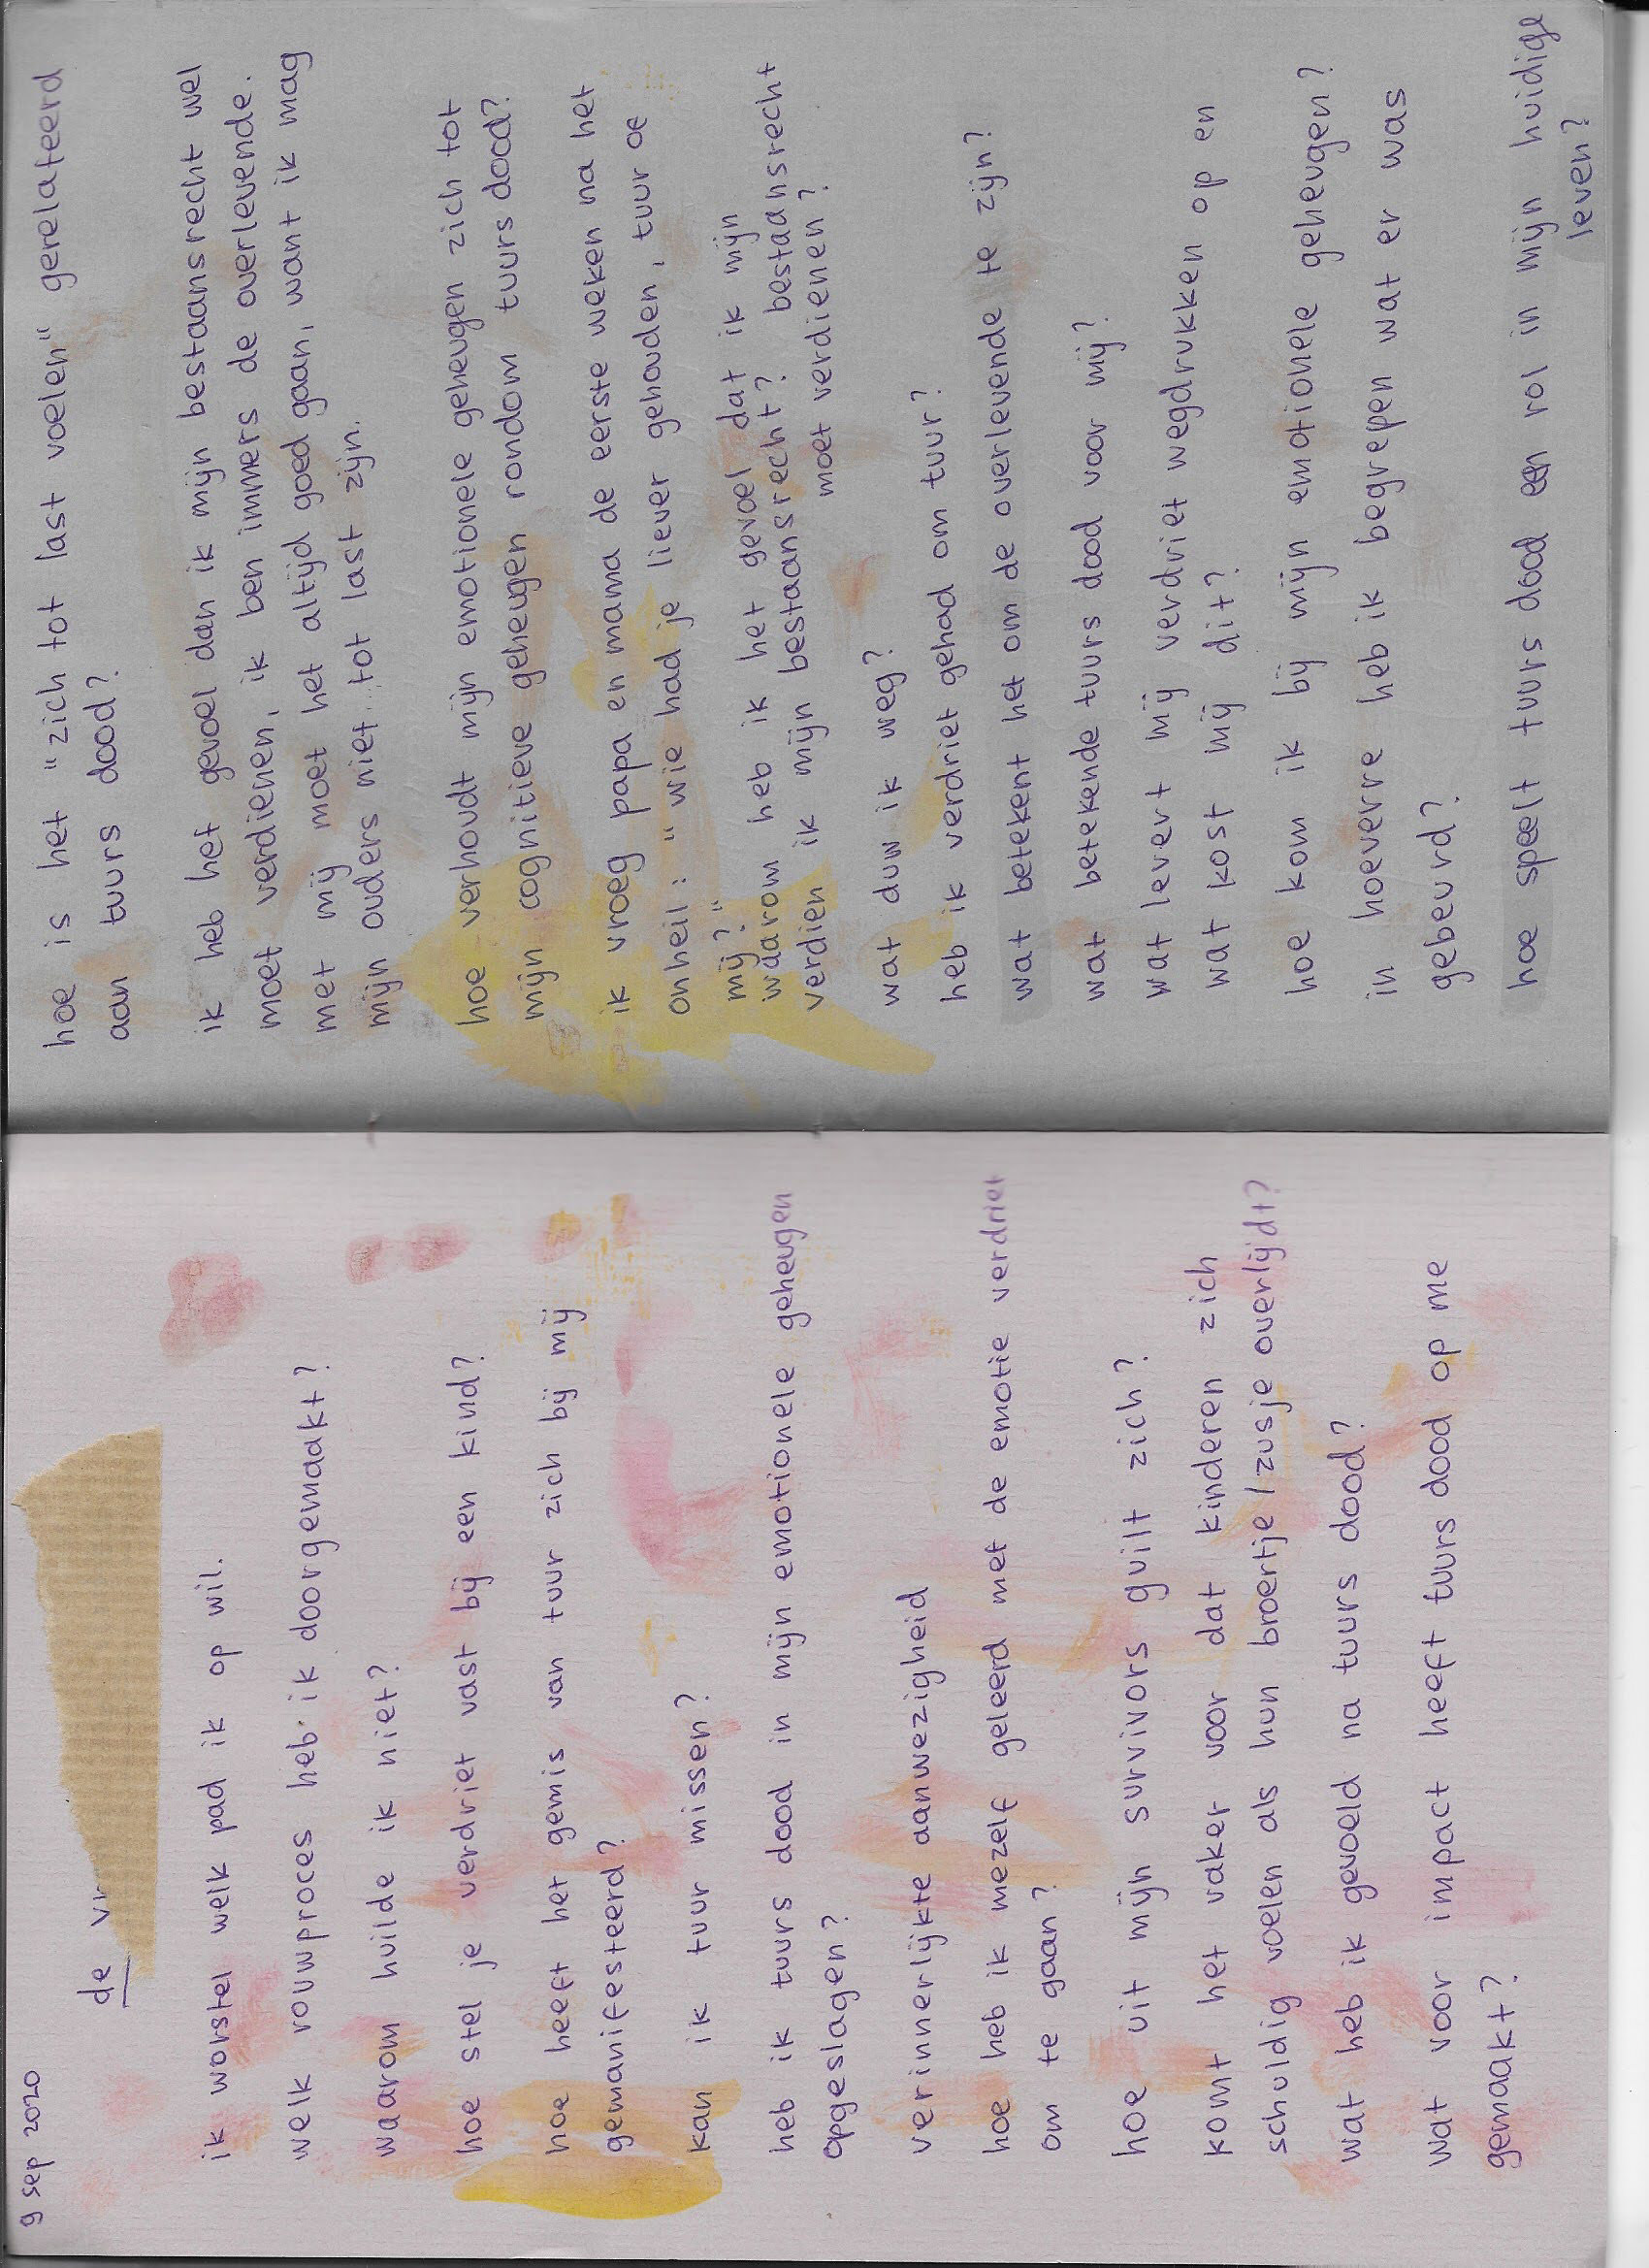 9 sep 2020
de
ik worstel welk pad ik op wil.
welk rouwproces heb ik doorgemaakt?
waarom huilde ik niet?
hoe stel je verdriet vast bij een kind?
hoe heeft het gemis van tuur zich bij mij
gemanifesteerd?
kan ik tuur missen?
heb ik tuurs dood in mijn emotionele geheugen
opgeslagen?
verinnerlijkte aanwezigheid
hoe heb ik mezelf geleerd met de emotie verdriet
om te gaan?
hoe uit mijn survivors guilt zich?
komt het vaker voor dat kinderen zich
schuldig voelen als hun broertje/zusje overlijdt?
wat heb ik gevoeld na tuurs dood?
wat voor impact heeft tuurs dood op me
gemaakt?
hoe is het "zich tot last voelen" gerelateerd
aan tuurs dood?
ik heb het gevoel dan ik mijn bestaansrecht wel
moet verdienen, ik ben immers de overlevende.
met mij moet het altijd goed gaan, want ik mag
mijn ouders niet tot last zijn.
hoe verhoudt mijn emotionele geheugen zich tot
mijn cognitieve geheugen rondom tuurs dood?
ik vroeg papa en mama de eerste weken na het
onheil: "wie had je liever gehouden, tuur of
mij?"
waarom heb ik het gevoel dat ik mijn
verdien ik mijn bestaansrecht? bestaansrecht
moet verdienen?
wat duw ik weg?
heb ik verdriet gehad om tuur?
wat betekent het om de overlevende te zijn?
wat betekende tuurs dood voor mij?
wat levert mij verdriet wegdrukken op en
wat kost mij dit?
hoe kom ik bij mijn emotionele geheugen?
in hoeverre heb ik begrepen wat er was
gebeurd?
hoe speelt tuurs dood een rol in mijn huidige
leven?